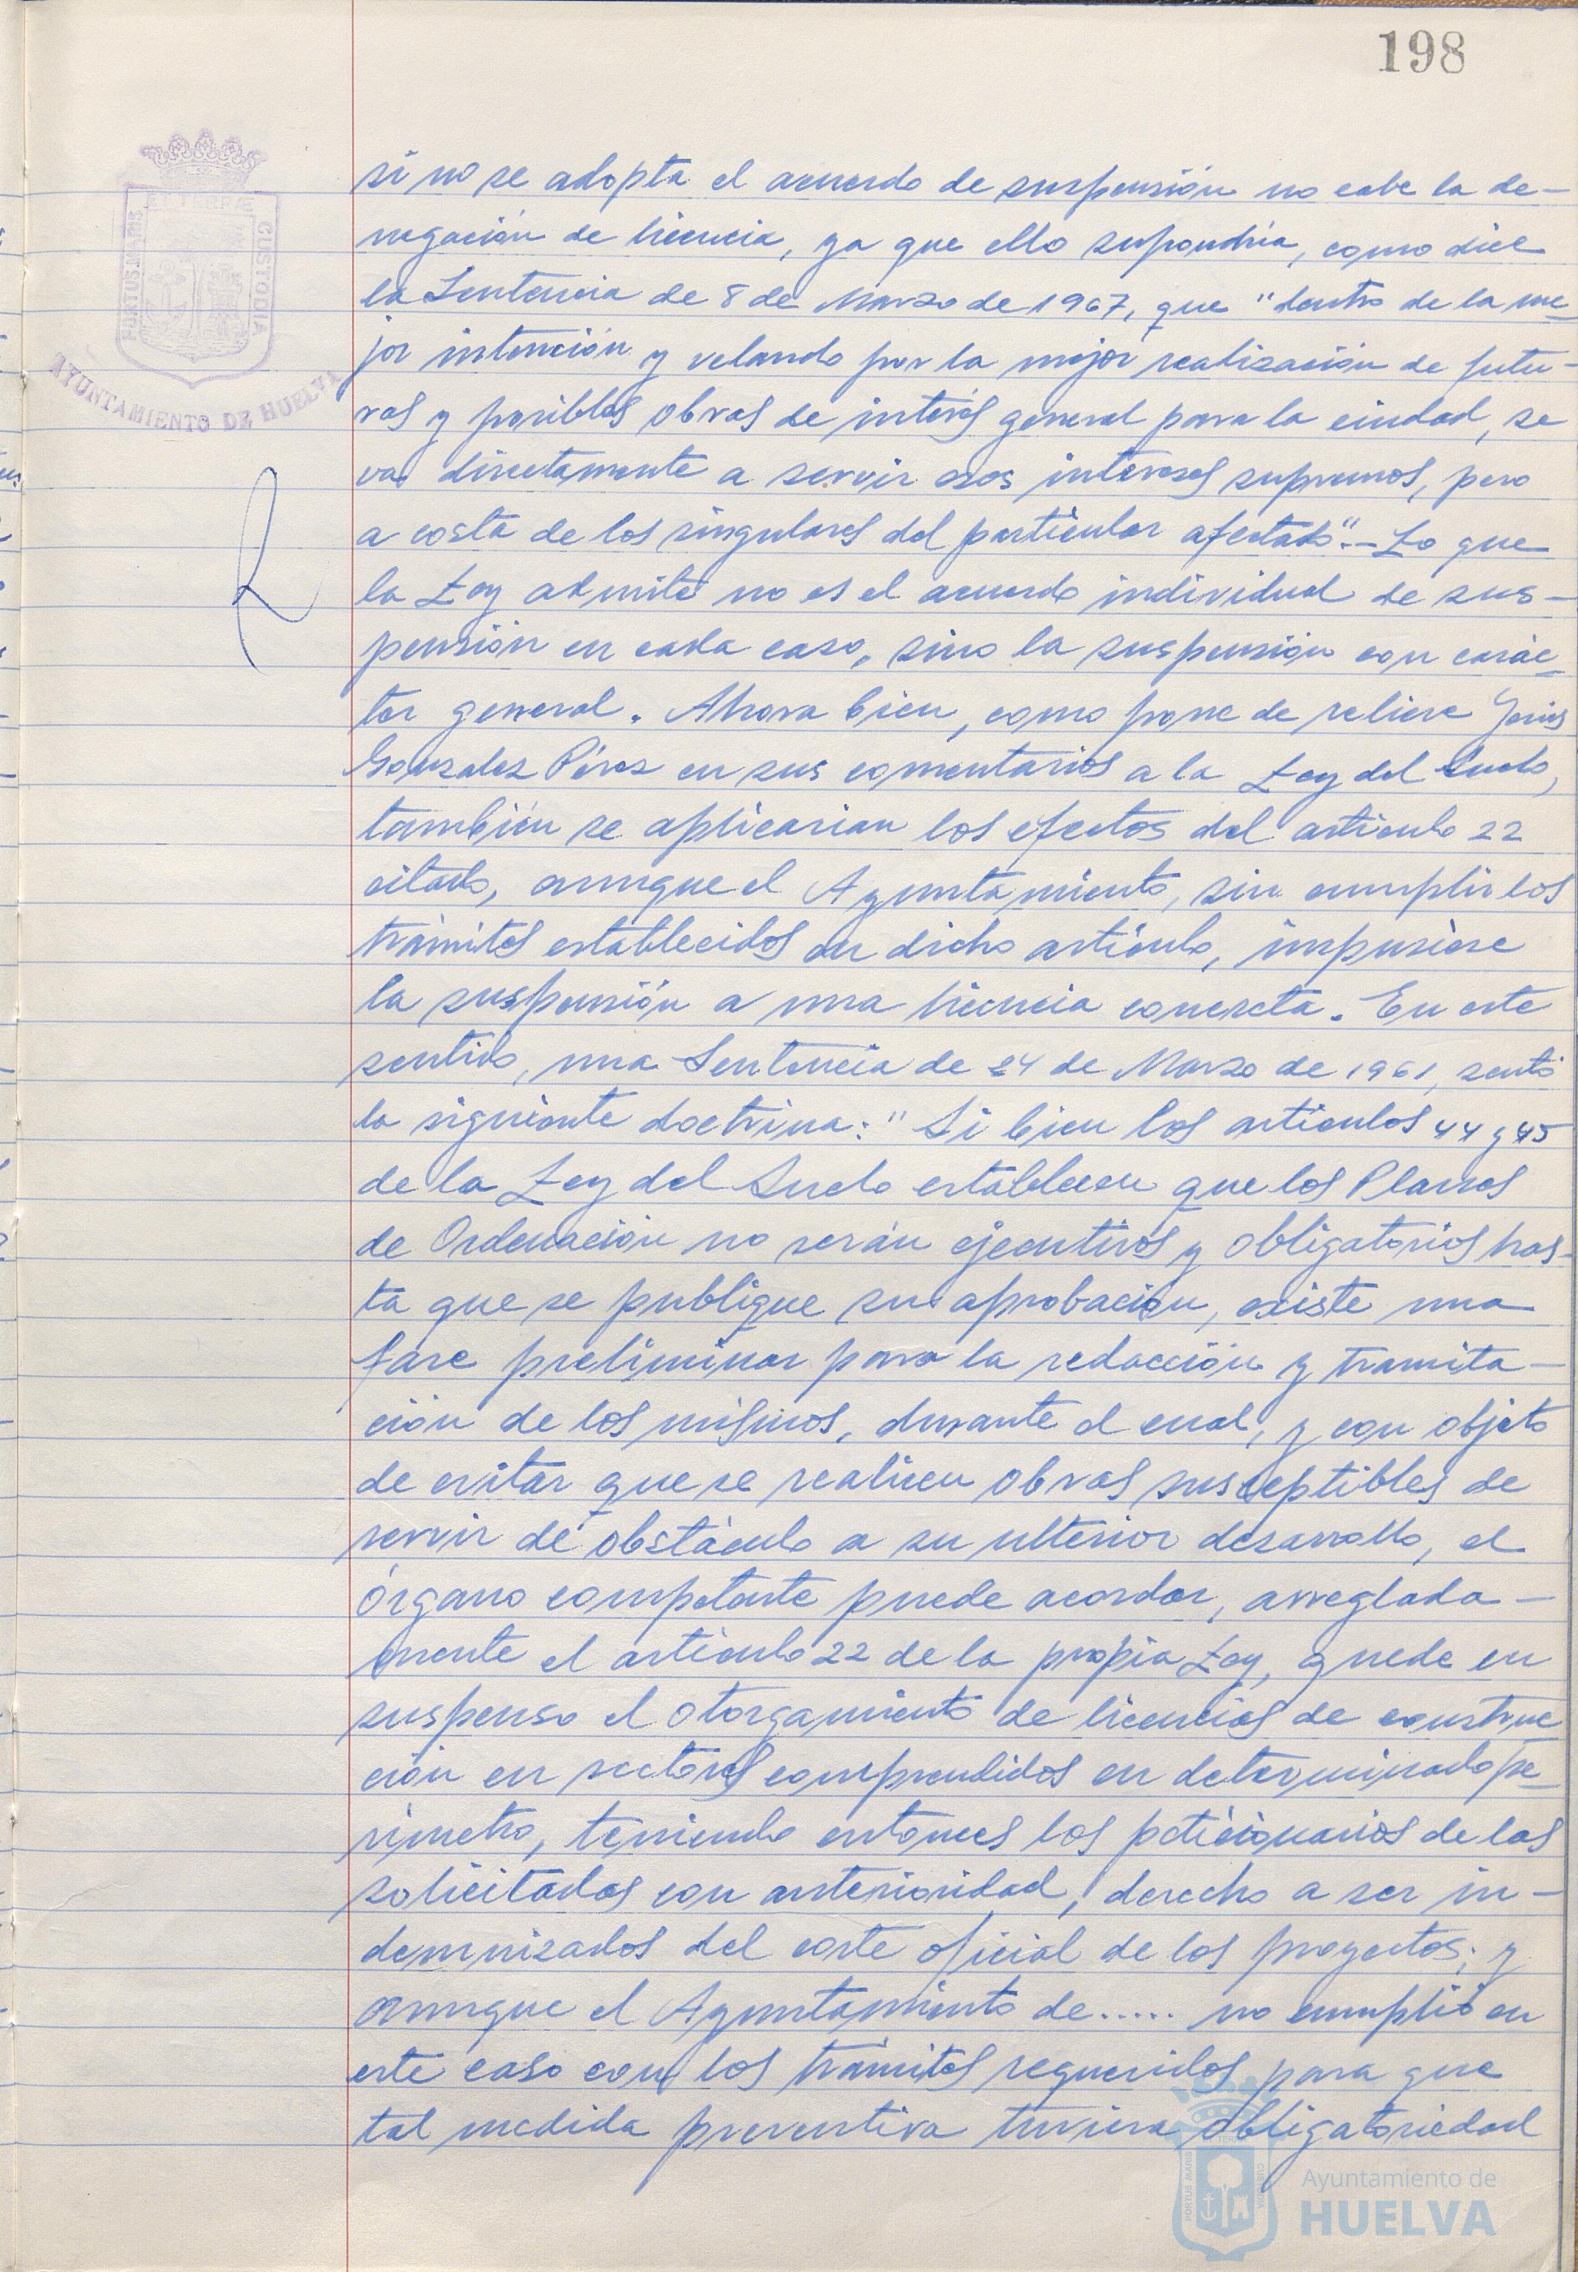 198
PORTUS MARIS
ET TERRE
CUSTODIA
AYUNTAMIENTO DE HUELVA
si no se adopta el acuerdo de suspensión no cabe la de-
negación de licencia, ya que ello supondría, como dice
la Sentencia de 8 de Marzo de 1967, que "dentro de la me-
jor intención y velando por la mejor realización de futu-
ras y posibles obras de interés general para la ciudad, se
va directamente a servir esos intereses supremos, pero
a costa de los singulares del particular afectado".- Lo que
la Ley admite no es el acuerdo individual de sus-
pensión en cada caso, sino la suspensión con carác-
ter general. Ahora bien, como pone de relieve Jesús
Gonzalez Pérez en sus comentarios a la Ley del Suelo,
también se aplicarian los efectos del artículo 22
citado, aunque el Ayuntamiento, sin cumplir los
trámites establecidos en dicho artículo, impusiese
la suspensión a una licencia concreta. En este
sentido, una Sentencia de 24 de Marzo de 1961, sentó
la siguiente doctrina: "Si bien los artículos 44 y 45
de la Ley del Suelo establecen que los Planes
de Ordenación no serán ejecutivos y obligatorios has-
ta que se publique su aprobación, existe una
fase preliminar para la redacción y tramita-
ción de los mismos, durante el cual, y con objeto
de evitar que se realicen obras susceptibles de
servir de obstáculo a su ulterior desarrollo, el
órgano competente puede acordar, arreglada-
mente el artículo 22 de la propia Ley, quede en
suspenso el otorgamiento de licencias de construc
ción en sectores comprendidos en determinado pe-
rímetro, teniendo entonces los peticionarios de las
solicitadas con anterioridad, derecho a ser in-
demnizados del coste oficial de los proyectos; y
aunque el Ayuntamiento de..... no cumplió en
este caso con los trámites requeridos para que
tal medida preventiva tuviera obligatoriedad
Ayuntamiento de
HUELVA